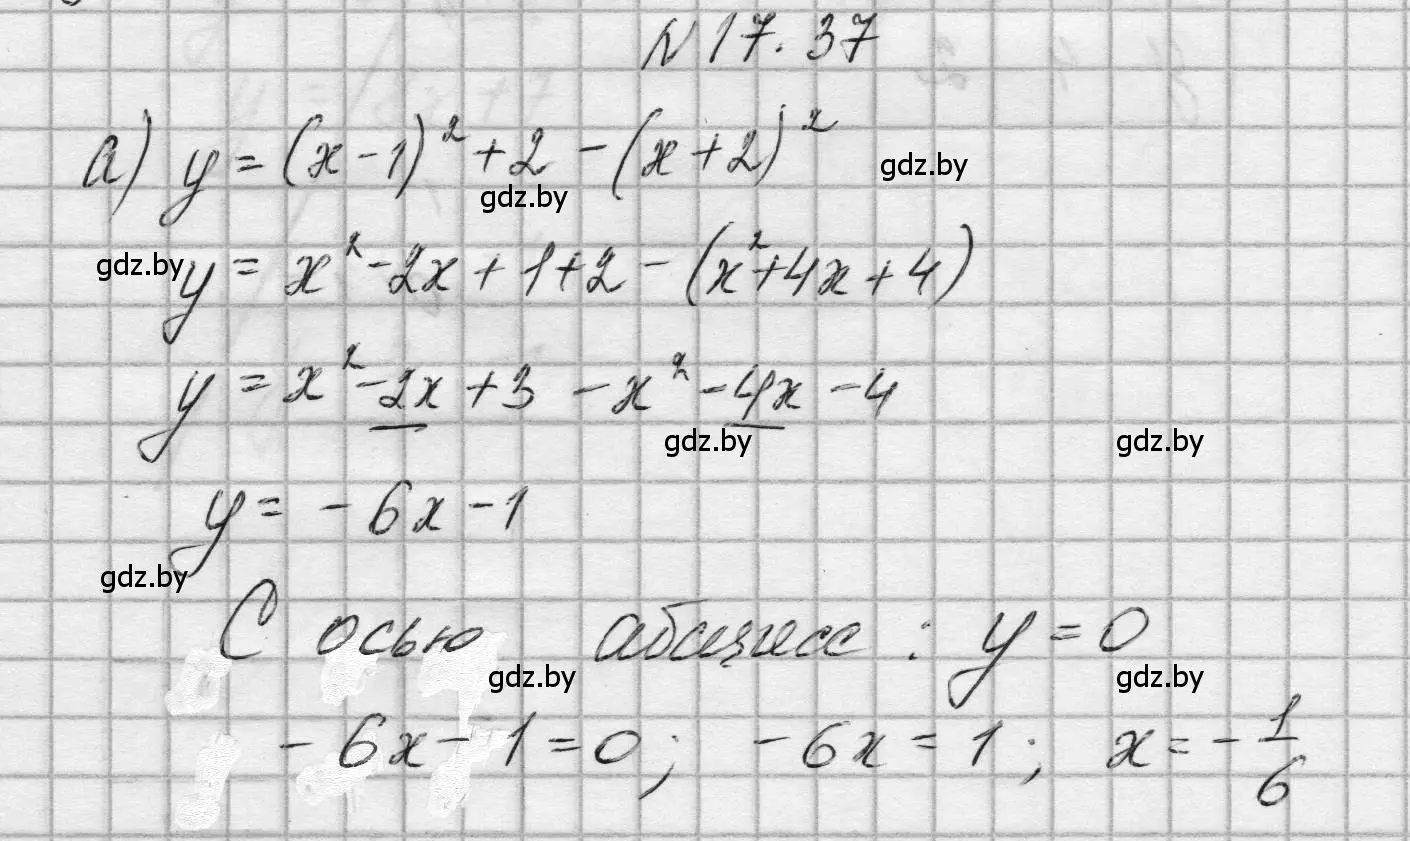 N 17.37
а) y = (x - 1)² + 2 - (x + 2)²
gdz.by
gdz.by
y = x² - 2x + 1 + 2 - (x² + 4x + 4)
gdz.by
y = x² - 2x + 3 - x² - 4x - 4
gdz.by
gdz.by
y = - 6x - 1
gdz.by
С осью абсцисс : y = 0
gdz.by
gdz.by
- 6x - 1 = 0 ; - 6x = 1 ; x = - 1/6